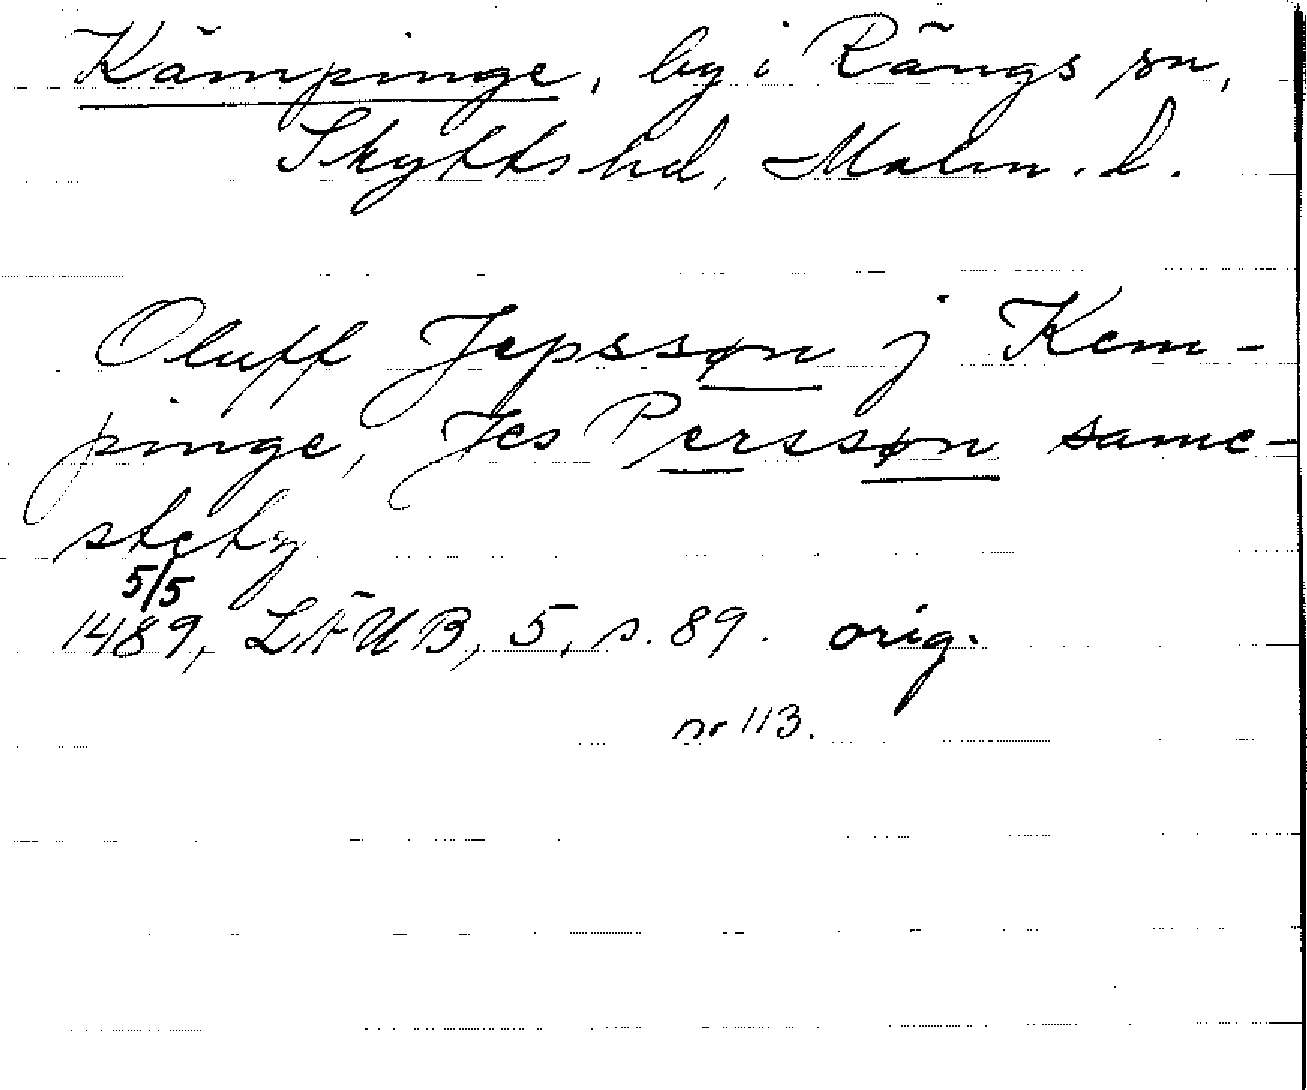 Kämpinge, by i Rängs sn,
Skytts hd, Malm. l.
Oluff Jepssøn j Kem-
pinge, Jes Perssøn same-
stety
5/5
1489, LÄUB, 5, s. 89. orig.
nr 113.